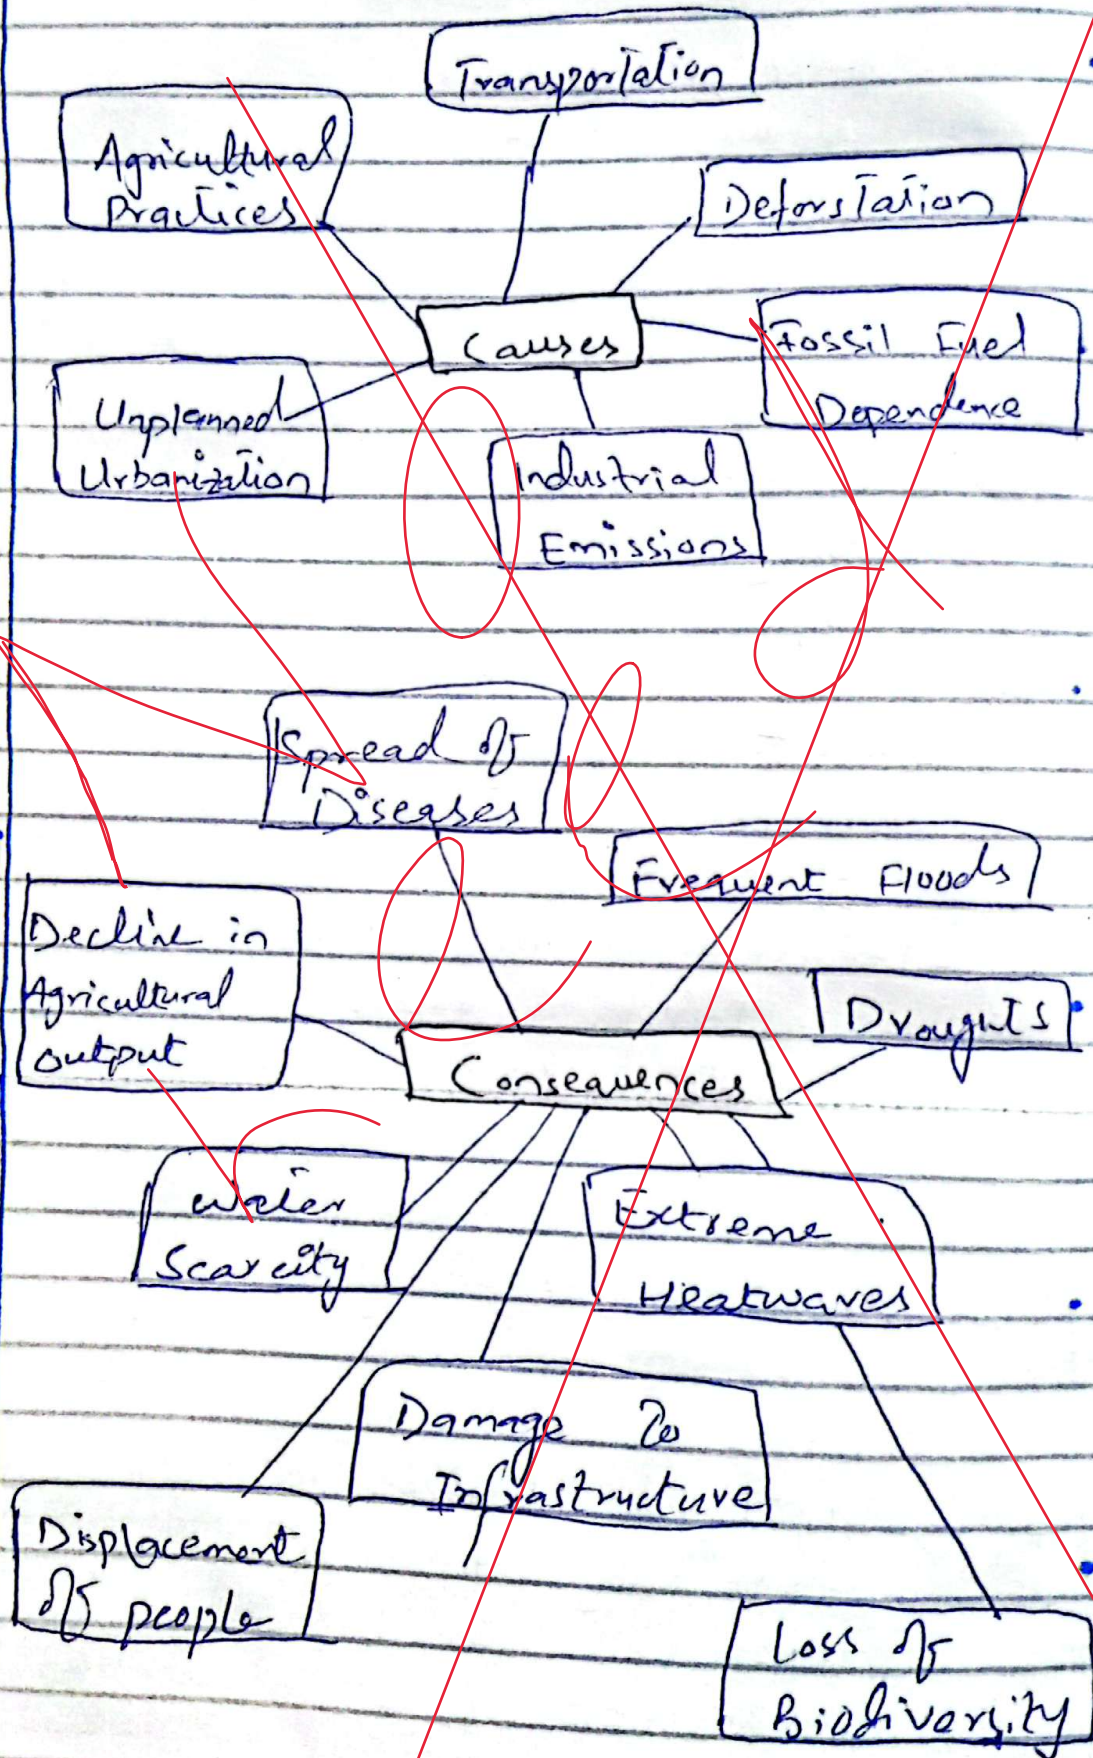 Transportation
Agricultural
Practices
Deforstation
Causes
Fossil Fuel
Dependence
Unplanned
Urbanization
Industrial
Emissions
Spread of
Diseases
Frequent Floods
Decline in
Agricultural
output
Droughts
Consequences
Water
Scarcity
Extreme
Heatwaves
Damage To
Infrastructure
Displacement
of people
Loss of
Biodiversity